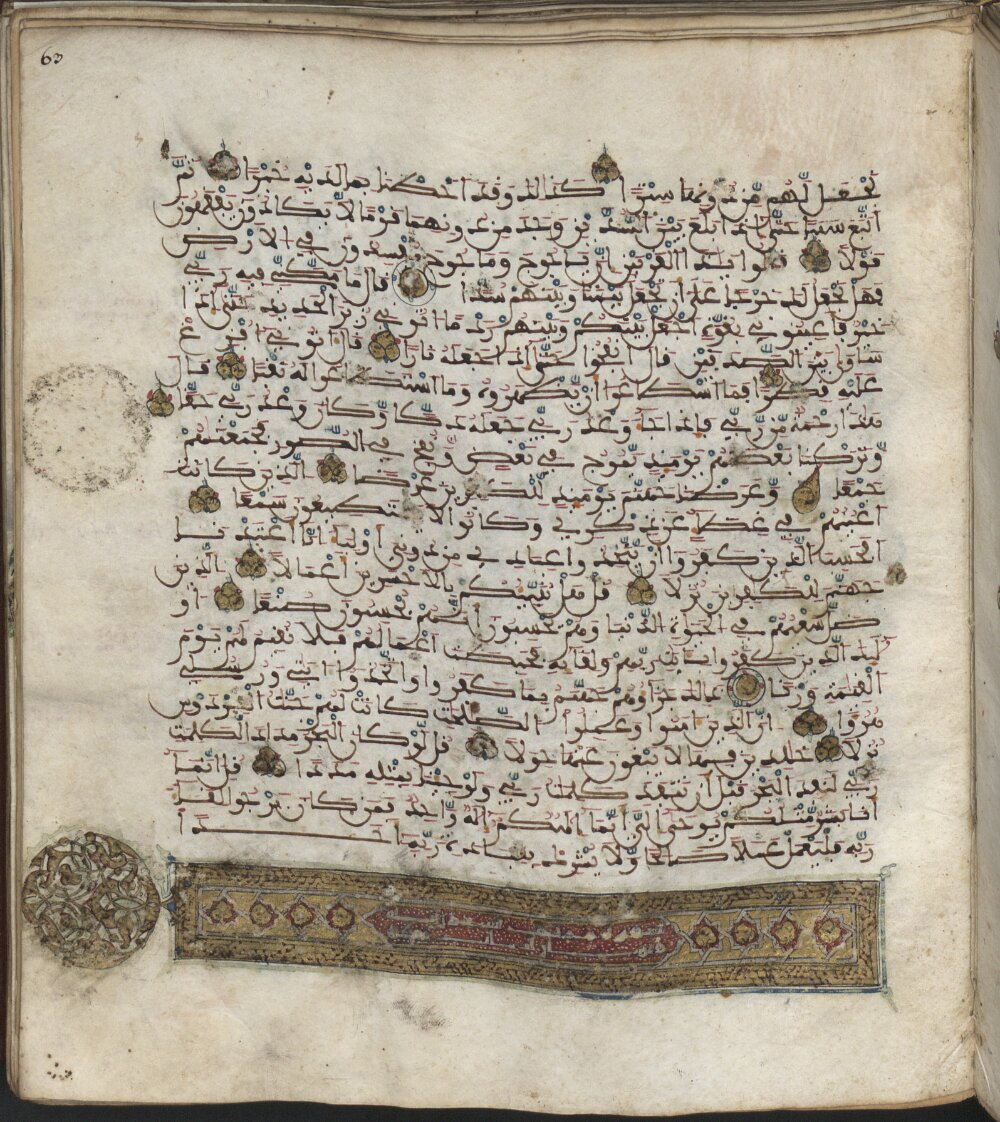 63
نجعل لهم من دونها سترا كذلك وقد احطنا بما لديه خبرا ثم
اتبع سببا حتى اذا بلغ بين السدين وجد من دونهما قوما لا يكادون يفقهون
قولا قالوا يذا القرنين ان ياجوج وماجوج مفسدون في الارض
فهل نجعل لك خرجا على ان تجعل بيننا وبينهم سدا قال ما مكني فيه ربي
خير فاعينوني بقوة اجعل بينكم وبينهم ردما اتوني زبر الحديد حتى اذا
ساوى بين الصدفين قال انفخوا حتى اذا جعله نارا قال اتوني افرغ
عليه قطرا فما اسطاعوا ان يظهروه وما استطاعوا له نقبا قال
هذا رحمة من ربي فاذا جا وعد ربي جعله دكا وكان وعد ربي حقا
وتركنا بعضهم يوميذ يموج في بعض ونفخ في الصور فجمعنهم
جمعا وعرضنا جهنم يوميذ للكفرين عرضا الذين كانت
اعينهم في غطا عن ذكري وكانوا لا يستطيعون سمعا
افحسب الذين كفروا ان يتخذوا عبادي من دوني اوليا انا اعتدنا
جهنم للكفرين نزلا قل هل ننبيكم بالاخسرين اعمالا الذين
ضل سعيهم في الحيوة الدنيا وهم يحسبون انهم يحسنون صنعا او
ليك الذين كفروا بايت ربهم ولقايه فحبطت اعمالهم فلا نقيم لهم يوم
القيمة وزنا ذلك جزاوهم جهنم بما كفروا واتخذوا ايتي ورسلي
هزوا ان الذين امنوا وعملوا الصلحت كانت لهم جنت الفردوس
نزلا خلدين فيها لا يبغون عنها حولا قل لو كان البحر مدادا لكلمت
ربي لنفد البحر قبل ان تنفد كلمت ربي ولو جينا بمثله مددا قل انما
انا بشر مثلكم يوحى الي انما الهكم اله واحد فمن كان يرجوا لقا
ربه فليعمل عملا صلحا ولا يشرك بعبادة ربه احدا